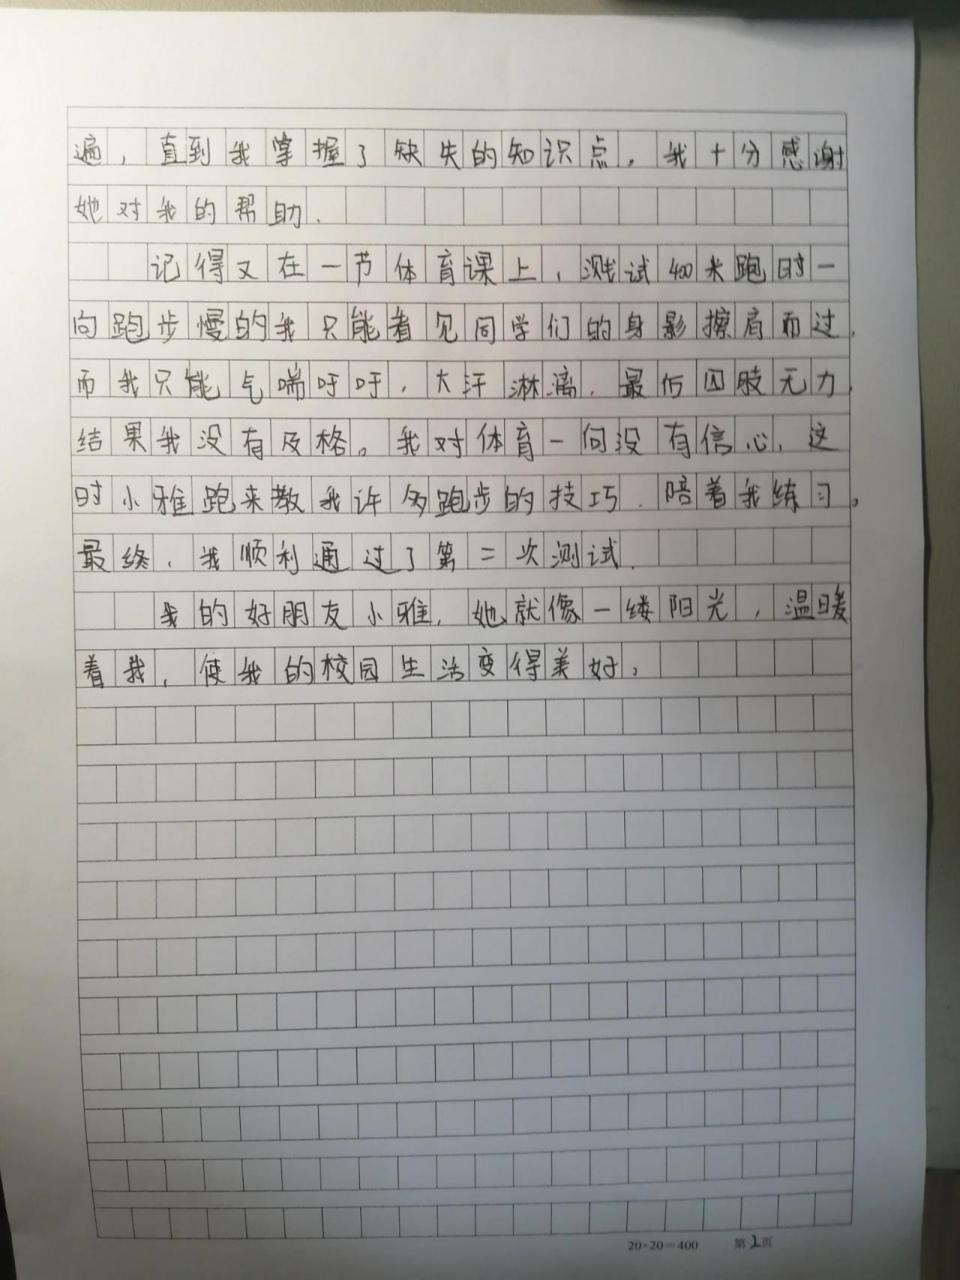 遍，直到我掌握了缺失的知识点，我十分感谢
她对我的帮助.
记得又在一节体育课上，测试400米跑时一
向跑步慢的我只能看见同学们的身影擦肩而过，
而我只能气喘吁吁，大汗淋漓，最后四肢无力，
结果我没有及格。我对体育一向没有信心，这
时小雅跑来教我许多跑步的技巧，陪着我练习。
最终，我顺利通过了第二次测试.
我的好朋友小雅，她就像一缕阳光，温暖
着我，使我的校园生活变得美好，
20×20=400 第2页